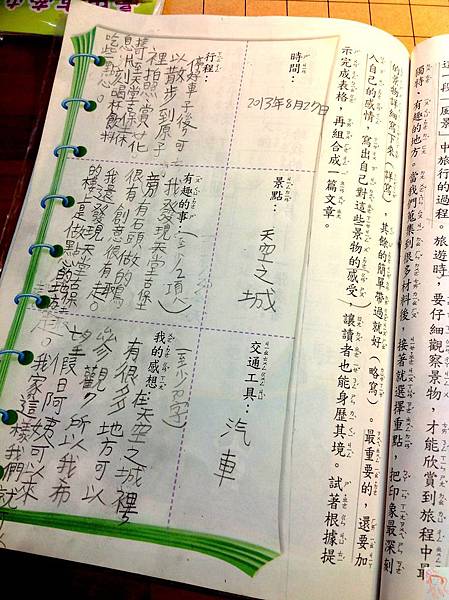 這一段「風景」中旅行的過程。旅遊時，要仔細觀察景物，才能欣賞到旅程中最
獨特、有趣的地方。當我們蒐集到很多材料後，接著就選擇重點，把印象最深刻
的景物詳細寫下來（詳寫），其餘的簡單帶過就好（略寫）。最重要的，還要加
入自己的感情，寫出自己對這些景物的感受，讓讀者也能身歷其境。試著根據提
示完成表格，再組合成一篇文章。
時間：
2013年8月27日
景點：
天空之城
交通工具：
汽車
行程：
停好車子後可
以散步到原子
裡拍照賞花
接著天堂古堡休
息片刻喝杯飲料
吃些點心。
有趣的事：（至少2項）
我發現天堂古堡
旁有石頭做的鴨
很有創意很有趣。
我還發現天堂古堡
的樓上是做點心的地
我的感想：
在天空之城裡，
有很多地方可以
參觀，所以我希
望假日阿姨可以來
我家這樣我們就可以